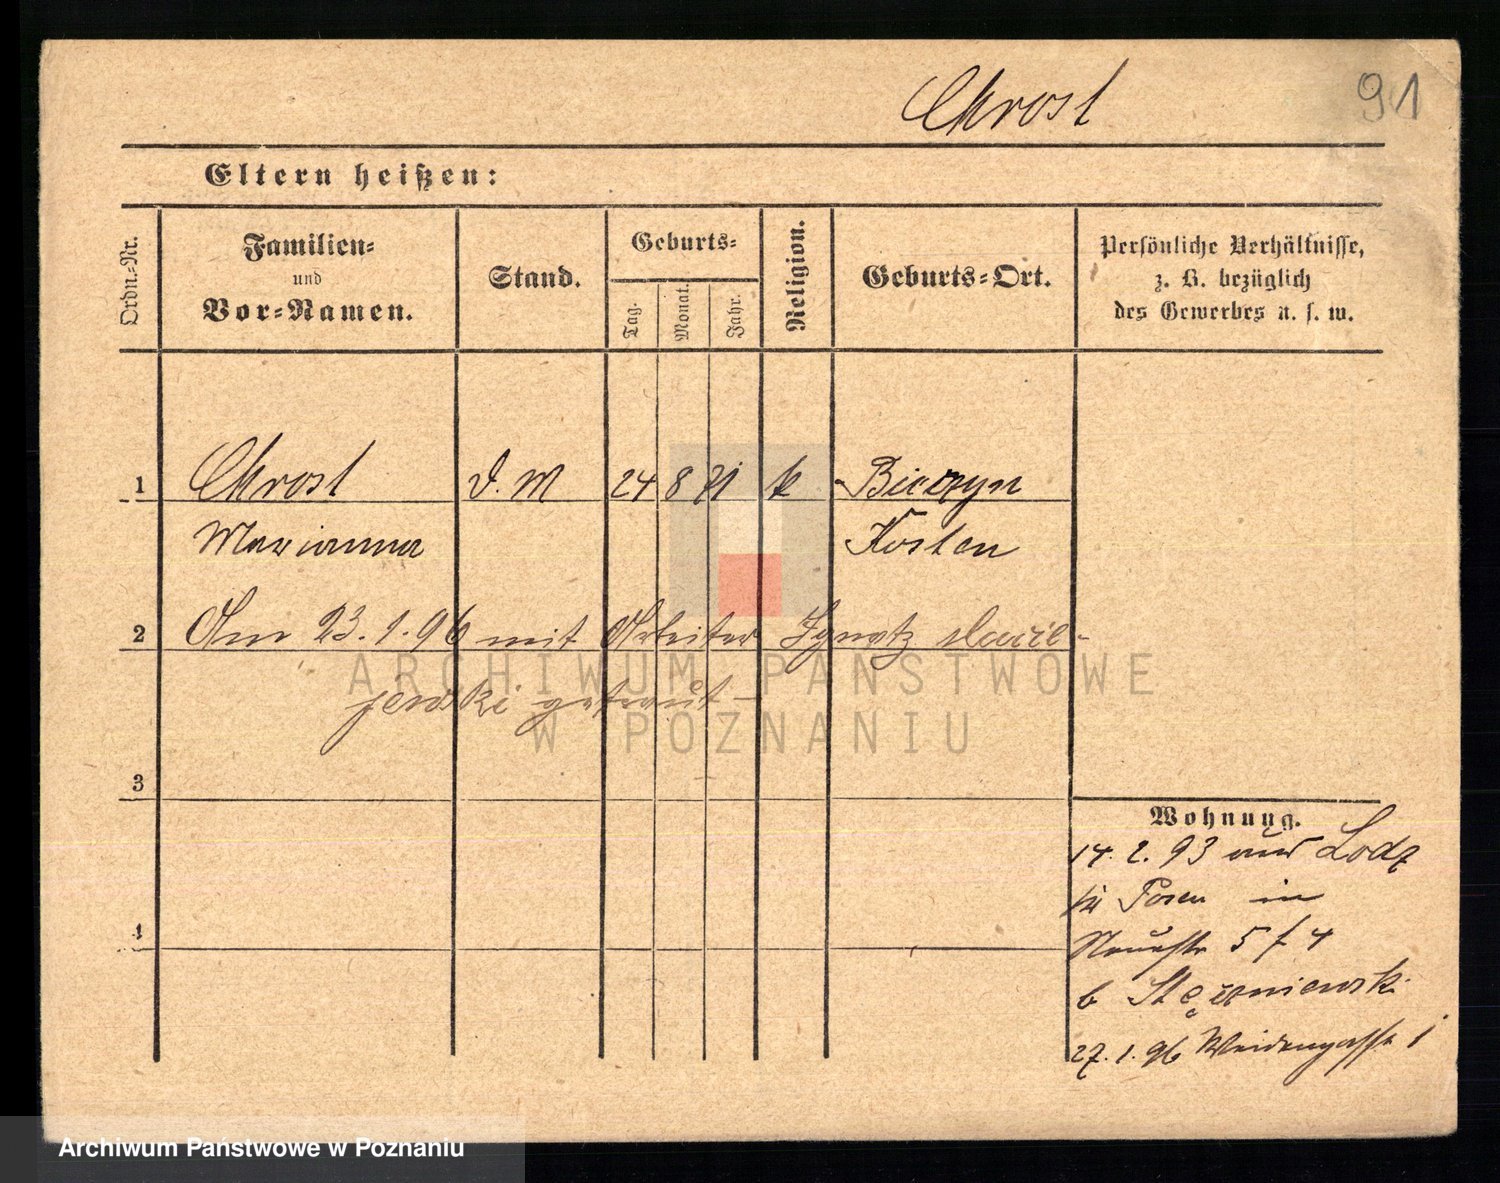 Chrost 91
Eltern heißen:
Ordn.-Nr.
Familien-
und
Vor-Namen.
Stand.
Geburts-
Tag.
Monat.
Jahr.
Religion.
Geburts-Ort.
Persönliche Verhältnisse,
z. B. bezüglich
des Gewerbes u. s. w.
1 Chrost D. M 24 8 71 k Bieczyn
Marianna Kosten
2 Am 23.1.96 mit Arbeiter Ignatz
jewski getraut-
3
Wohnung.
14. 2. 93 aus Lodz
zu Posen in
Neuestr 5 4
4
b
27. 1. 96 Weidengasse 1
ARCHIWUM PAŃSTWOWE
W POZNANIU
Archiwum Państwowe w Poznaniu